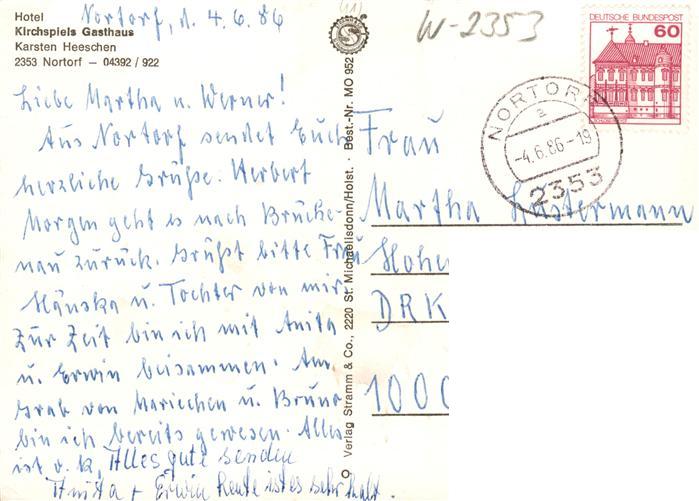 Nortorf, d. 4.6.86
Hotel
Kirchspiels Gasthaus
Karsten Heeschen
2353 Nortorf – 04392 / 922
Liebe Martha u. Werner!
Aus Nortorf sendet Euch
herzliche Grüße: Herbert
Morgen geht es nach Brücke-
nau zurück. Grüßt bitte Frau
Hänska u. Tochter von mir
Zur Zeit bin ich mit Anita
u. Erwin beisammen. Am
Grab von Mariechen u. Bruno
bin ich bereits gewesen. Alles
ist o.k. Alles gute senden
Anita + Erwin Heute ist es sehr kalt.
Verlag Stramm & Co., 2220 St. Michaelisdonn/Holst. · Best.-Nr. MO 952
W-2353
DEUTSCHE BUNDESPOST
60
NORTORF
a
-4.6.86-19
2353
Frau
Martha
Hohe
DRK
1000